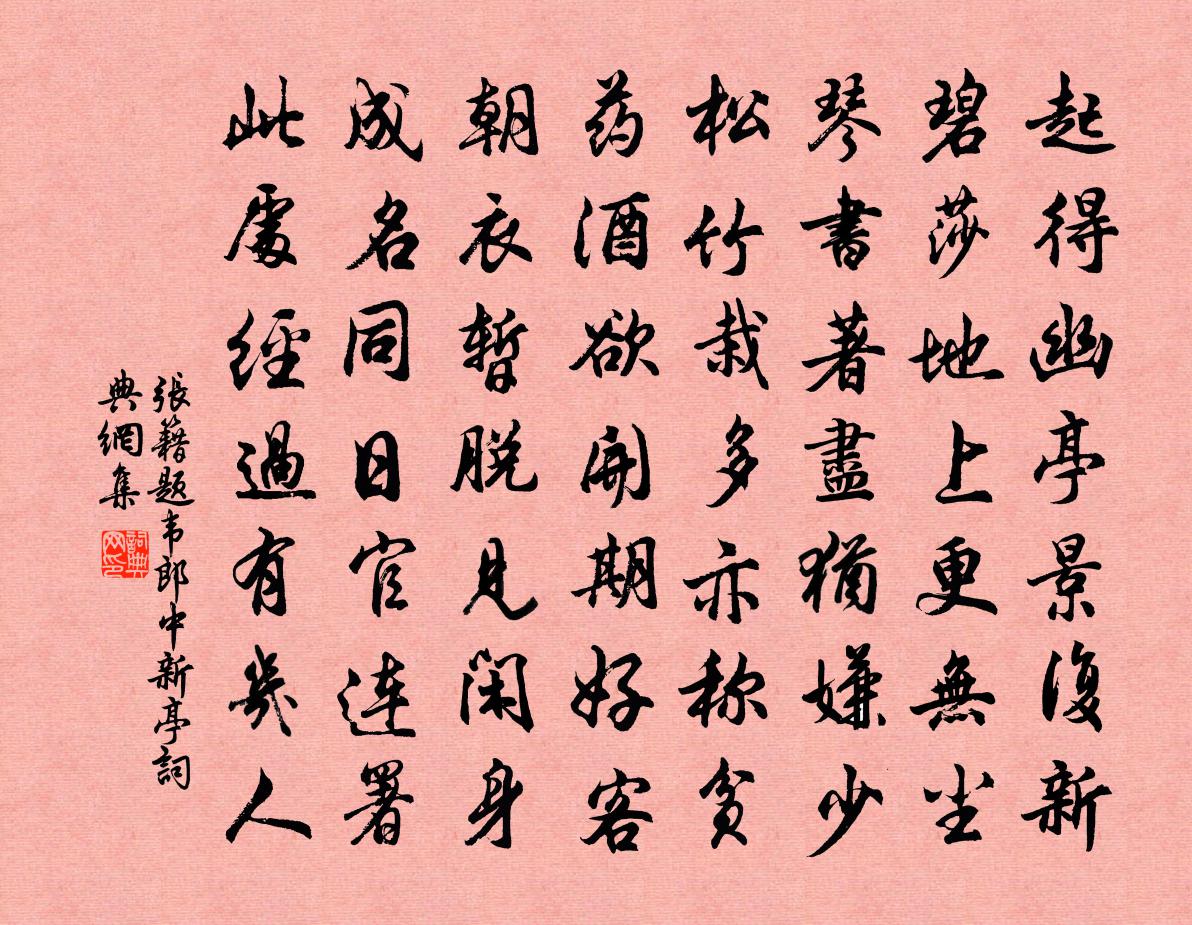 起得幽亭景復新
碧莎地上更無尘
琴書著盡猶嫌少
松竹栽多亦称贫
药酒欲開期好客
朝衣暫脱見闲身
成名同日官连署
此處經過有幾人
張籍題韦郎中新亭詞
典網集
詞典网印